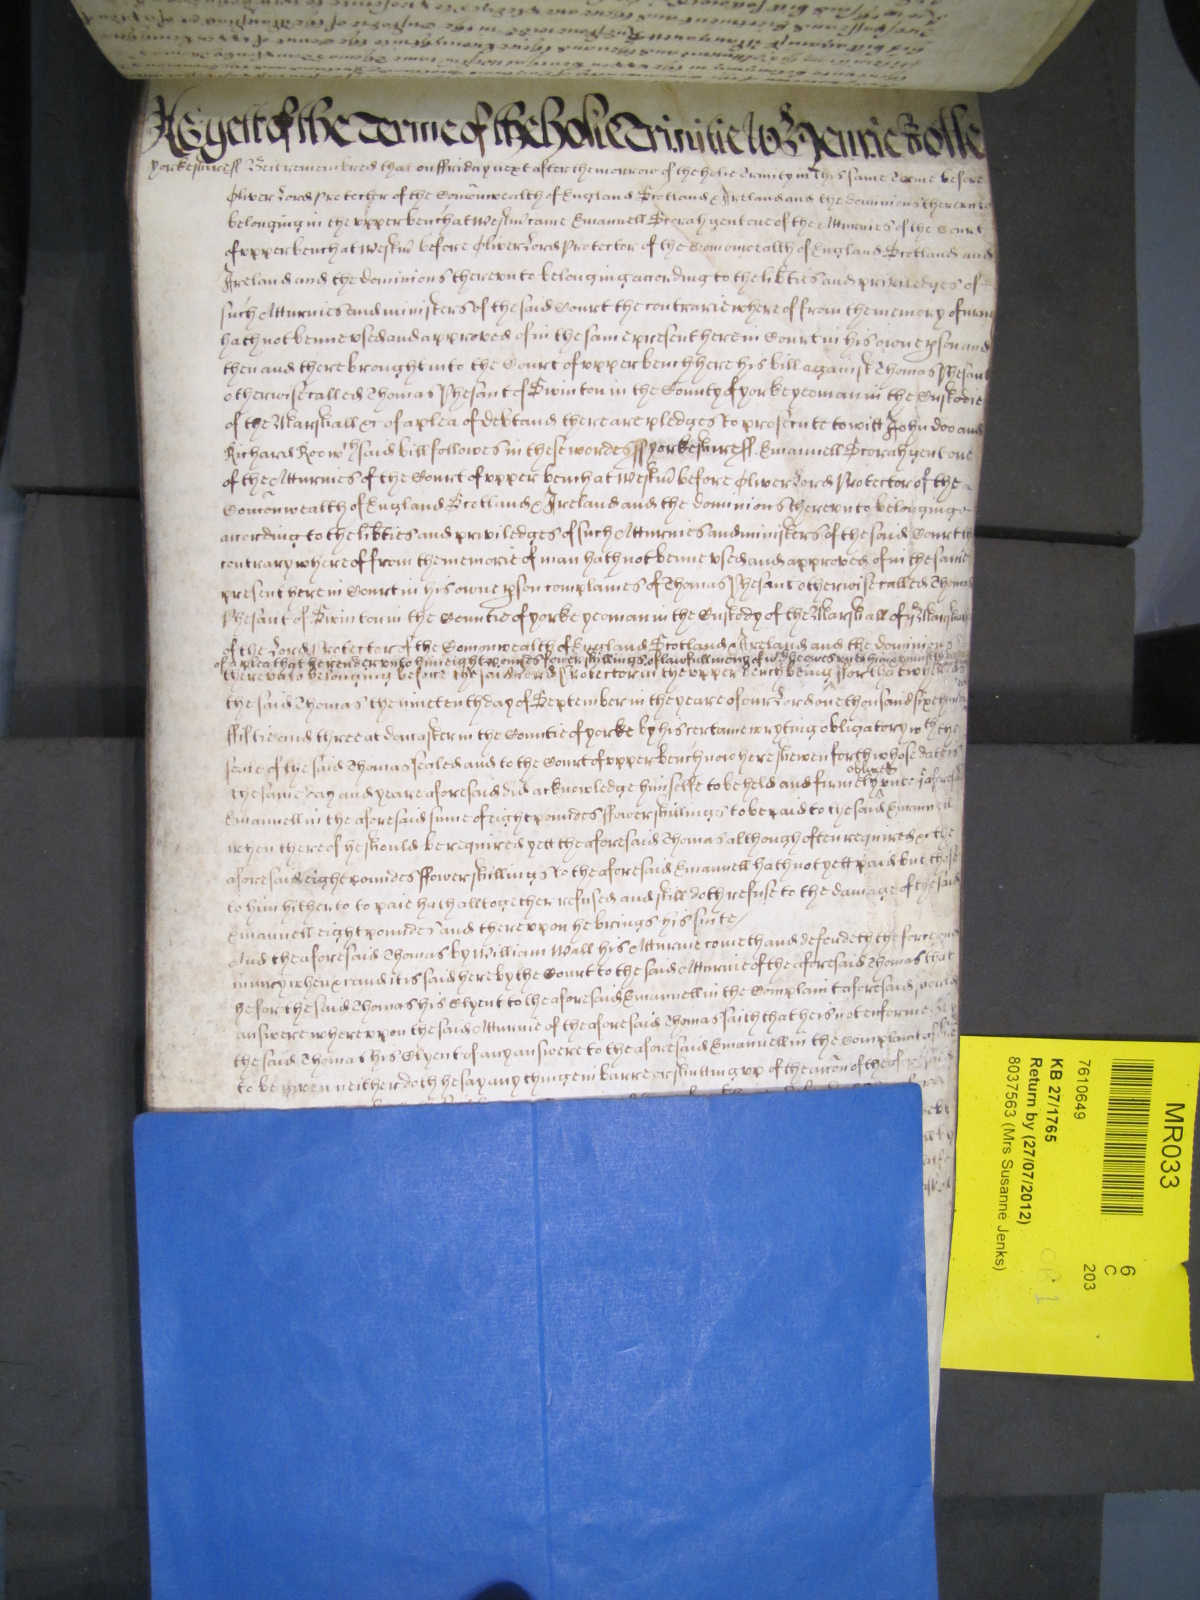 As yett of the Terme of the holie Trinitie Wits Henrie Rolle
Yorkeshire ss Be it remembred that on ffriday next after the morrow of the holie Trinity in this same Terme before
Oliver Lord Protector of the Comonwealth of England Scotland & Ireland and the dominions thereunto
belonging in the upper bench at Westm came Emanuell Scorah gent one of the Atturnies of the Court
of upper bench at Westm before Oliver Lord Protector of the Comonwealth of England Scotland and
Ireland and the dominions thereunto belonging according to the lib'ties and priviledges of
such Atturnies and ministers of the said Court the contrarie whereof from the memory of man
hath not benne used and approved of in the same present here in Court in his owne p'son and
then and there brought into the Court of upper bench here his bill against Thomas Phesant
otherwise called Thomas Phesant of Swinton in the County of yorke yeoman in the Custodie
of the Marshall &c of a plea of debt and there are pledges to prosecute to witt John Doo and
Richard Roo wch said bill followes in these wordes ss yorkeshire ss. Emanuell Scorah gent one
of the Atturnies of the Court of upper bench at Westm before Oliver Lord Protector of the
Comonwealth of England Scotland & Ireland and the dominions thereunto belonginge
according to the lib'ties and priviledges of such Atturnies and ministers of the said Court the
contrary whereof from the memorie of man hath not benne used and approved of in the same
present here in Court in his owne p'son complaines of Thomas Phesant otherwise called Thomas
Phesant of Swinton in the Countie of yorke yeoman in the Custody of the Marshall of ye Marshalsey
of the Lord Protector of the Comonwealth of England Scotland & Ireland and the dominions
of a plea that he render unto him eight poundes fower shillings of lawfull mony of
thereunto belonging before the said Lord Protector in the upper bench being ffor that whereas
the said Thomas the nineteenth day of September in the yeare of our Lord one thousand six hundred
ffiftie and three at doncaster in the Countie of yorke by his certaine wryting obligatory wth the
seale of the said Thomas sealed and to the Court of upper bench now here shewen forth whose date is
the same day and yeare aforesaid did acknowledge himselfe to be held and firmely obliged unto ye aforesaid
Emanuell in the aforesaid sume of eight poundes ffower shillings to be paid to the said Emanuell
when thereof he should be required yett the aforesaid Thomas although often required &c the
aforesaid eight poundes ffower shillings to the aforesaid Emanuell hath not yett paid but those
to him hitherto to paie hath alltogether refused and still doth refuse to the damage of the said
Emanuell eight poundes and thereupon he brings his suite/
And the aforesaid Thomas by William Wall his Atturnie cometh and defendeth the force and
iniury when &c and it is said here by the Court to the said Atturnie of the aforesaid Thomas that
he for the said Thomas his Clyent to the aforesaid Emanuell in the Complaint aforesaid
answere whereupon the said Atturnie of the aforesaid Thomas saith that he is not enformed
the said Thomas his Clyent of any answere to the aforesaid Emanuell in the Complaint
to be given neither doth he say any thinge in barre or shutting up of the accon of the
MR033
6
C
203
7610649
KB 27/1765
Return by (27/07/2012)
8037563 (Mrs Susanne Jenks)